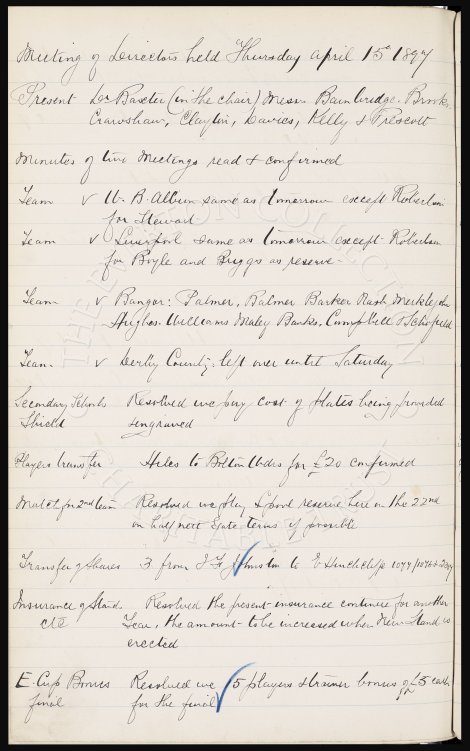 Meeting of Directors held Thursday April 15th 1897
Present Dr Baxter (in the chair) Messrs Bainbridge. Brooks.
Crawshaw, Clayton, Davies, Kelly & Prescott
Minutes of two Meetings read & confirmed
Team v W. B. Albion same as tomorrow except Robertson
for Stewart
Team v Liverpool same as tomorrow except Robertson
for Boyle and Briggs as reserve.
Team v Bangor: Palmer, Balmer Barker Nash Meiklejohn
Hughes Williams Maley Banks, Campbell & Schofield
Team v Derby County: left over until Saturday
Secondary Schools Resolved we pay cost of plates being provided
Shield engraved
Players transfer Hiles to Bolton Wdrs for £20 confirmed
Match for 2nd Team Resolved we play L'pool reserve here on the 22nd
on half nett gate terms if possible
Transfer of Shares 3 from J F Johnston to E Hinchcliffe
Insurance of Stand Resolved the present insurance continue for another
etc Year, the amount to be increased when New Stand is
erected
E. Cup Bonus Resolved we 15 players & trainer bonus of £5 each
final for the final
THE EVERTON COLLECTION
CHARITABLE TRUST